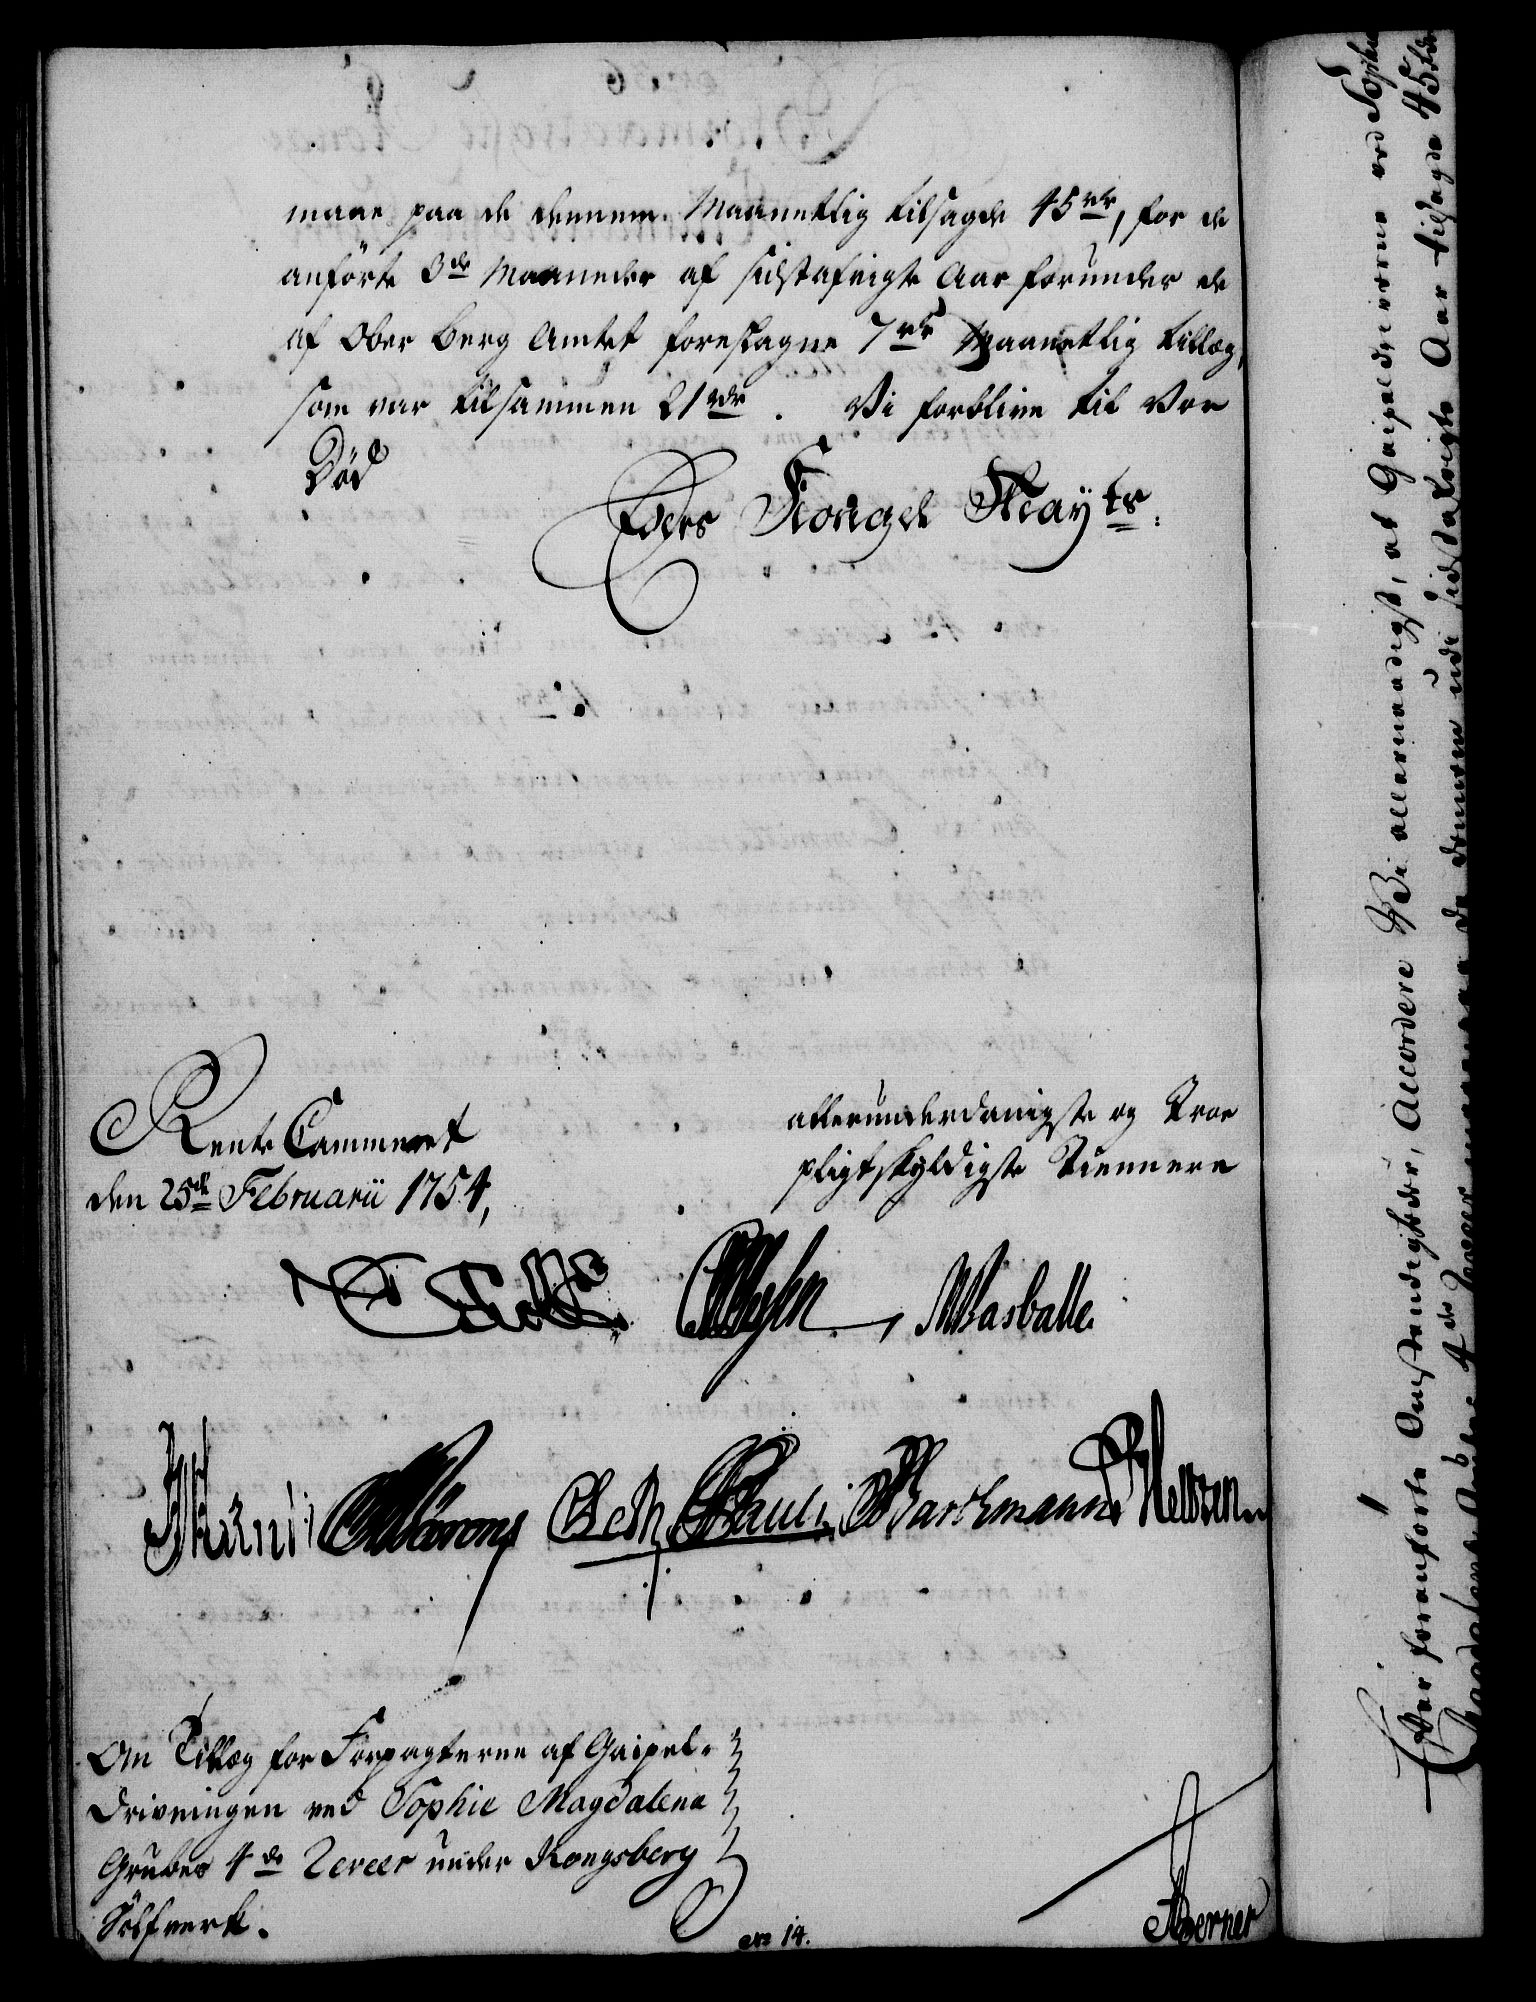 maae paa de dennem Maanetlig tilsagde 45 rdr, for de
anförte 3de Maaneder af sidstafvigte Aar forunder de
af Ober Berg Amtet foreslagne 7 rdr Maanetlig tillæg,
som var tilsammen 21 rdr. Vi forblive til Vor
Död
Eders Kongel Mayts.
Rente Cammeret
den 25de Februarii 1754,
allerunderdanigste og Troe
pligtskyldigste Tiennere
Wasballe.
Pauli Barthmann
Om Tillæg for Forpagterne af Gaipel-
Drivningen ved Sophie Magdalena
Grubes 4de Zeceer under Kongsberg
Sölfverk.
No 14.
Aberner
Per foranförte Omstændigheder, Accordere Vi allernaadigst, at Gaipeldriverne ved Sophie
Magdalena Grubes 4de maae paa de dennem udi sidstafvigte Aar tilsagde 45 rdr